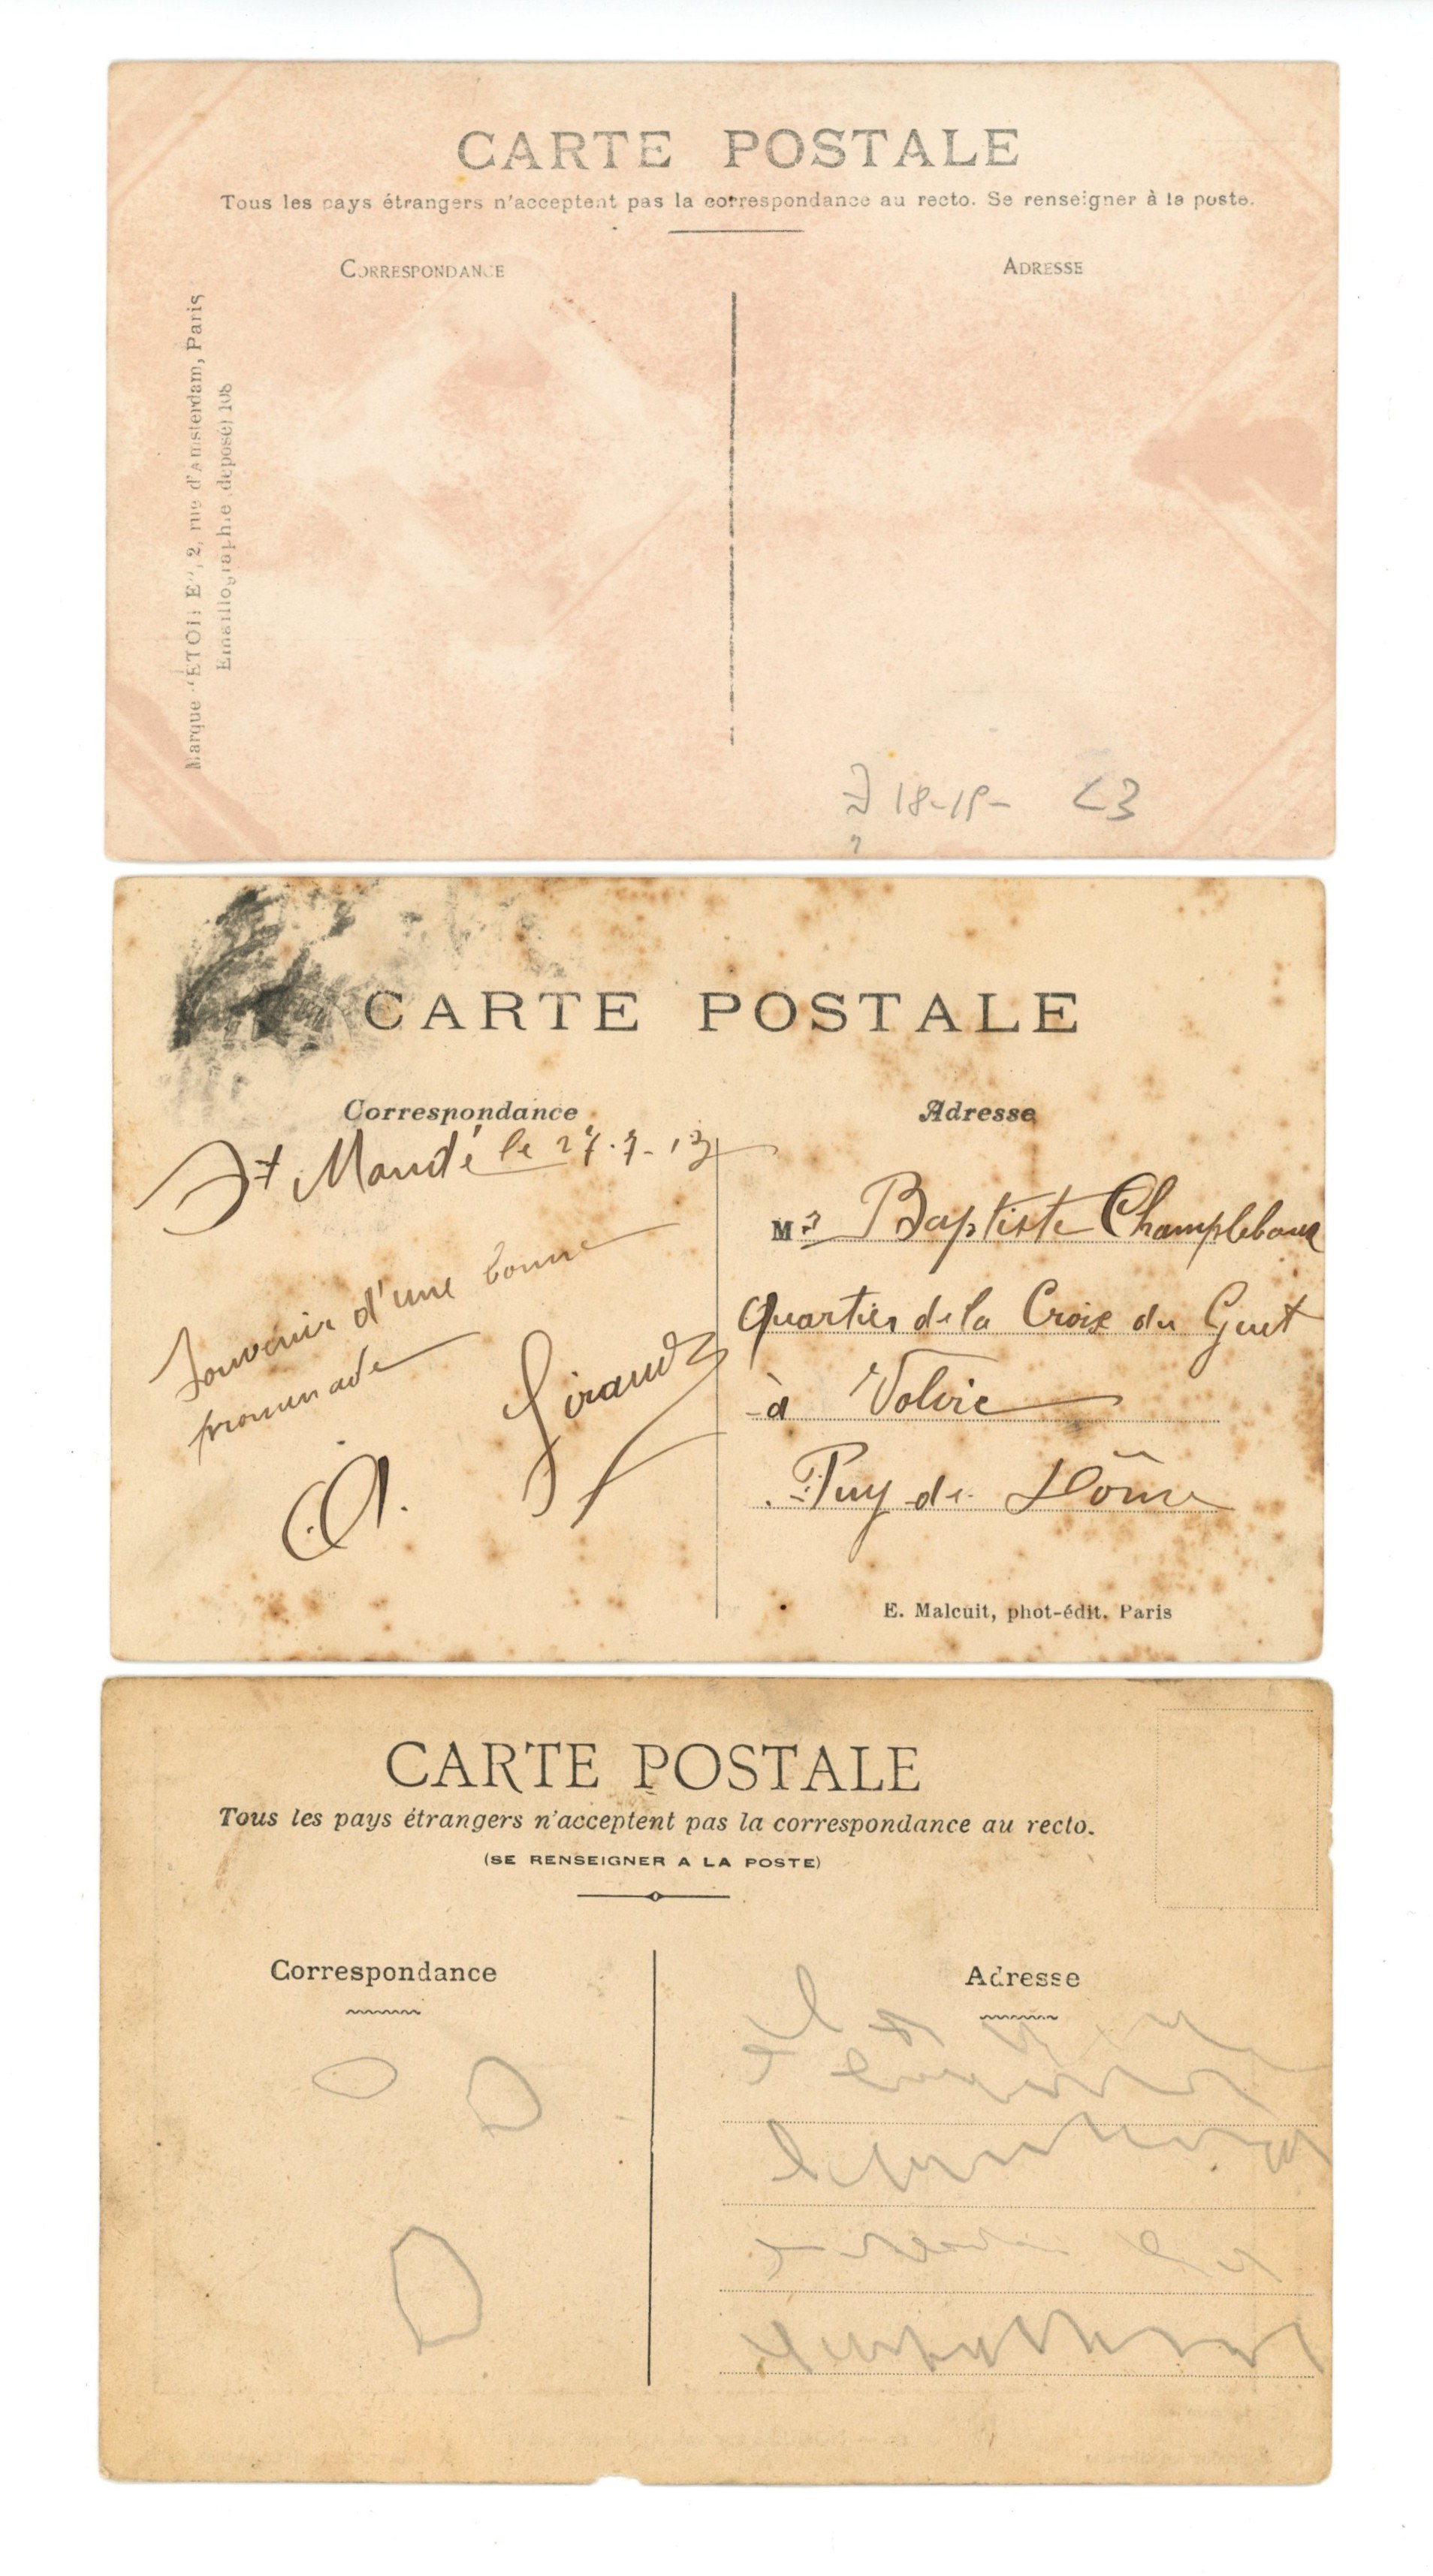 CARTE POSTALE
Tous les pays étrangers n'acceptent pas la correspondance au recto. Se renseigner à la poste.
CORRESPONDANCE
ADRESSE
Marque "ETOILE", 2, rue d'Amsterdam, Paris
Emaillographie (déposé) 108
18-19-
CARTE POSTALE
Correspondance
Adresse
St Mandé le 27.7.13
Souvenir d'une bonne
promenade
A. Giraud
Mr Baptiste Champleboux
Quartier de la Croix du Guet
à Volvic
Puy de Dôme
E. Malcuit, phot-édit. Paris
CARTE POSTALE
Tous les pays étrangers n'acceptent pas la correspondance au recto.
(SE RENSEIGNER A LA POSTE)
Correspondance
Adresse